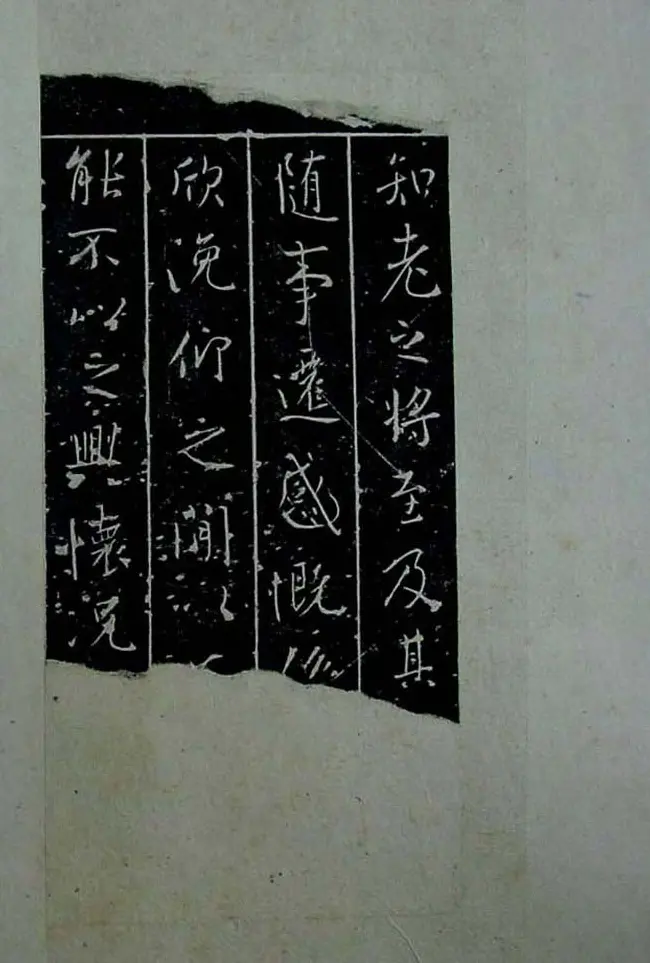 知老之将至及其
随事遷感慨係
欣俛仰之閒以
能不以之興懷況